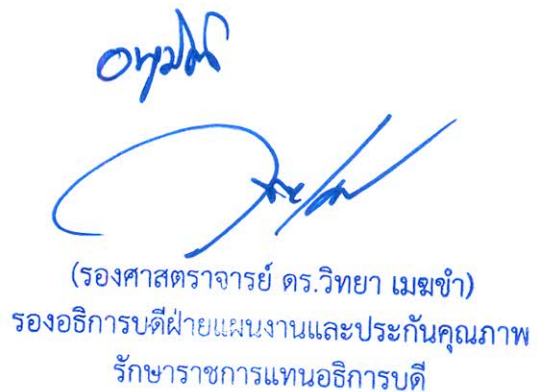 อนุมัติ
(รองศาสตราจารย์ ดร.วิทยา เมฆขำ)
รองอธิการบดีฝ่ายแผนงานและประกันคุณภาพ
รักษาราชการแทนอธิการบดี